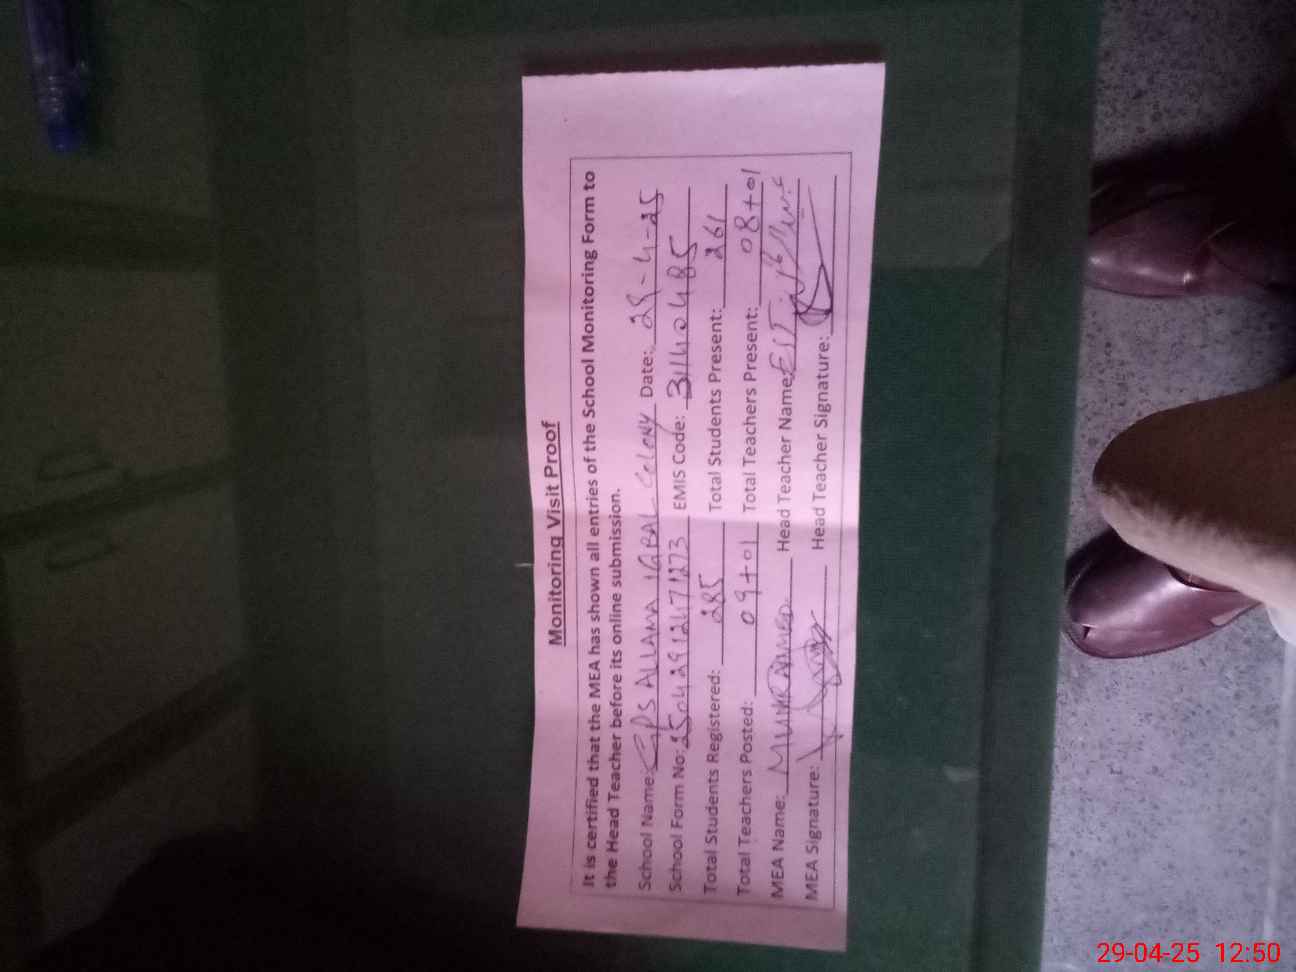 Monitoring Visit Proof
It is certified that the MEA has shown all entries of the School Monitoring Form to
the Head Teacher before its online submission.
School Name: GPS ALLAMA IQBAL COLONY Date: 29-4-25
School Form No: 25042912471273 EMIS Code: 31140485
Total Students Registered: 285 Total Students Present: 261
Total Teachers Posted: 09+01 Total Teachers Present: 08+01
MEA Name: Head Teacher Name: EST
MEA Signature: Head Teacher Signature:
29-04-25 12:50